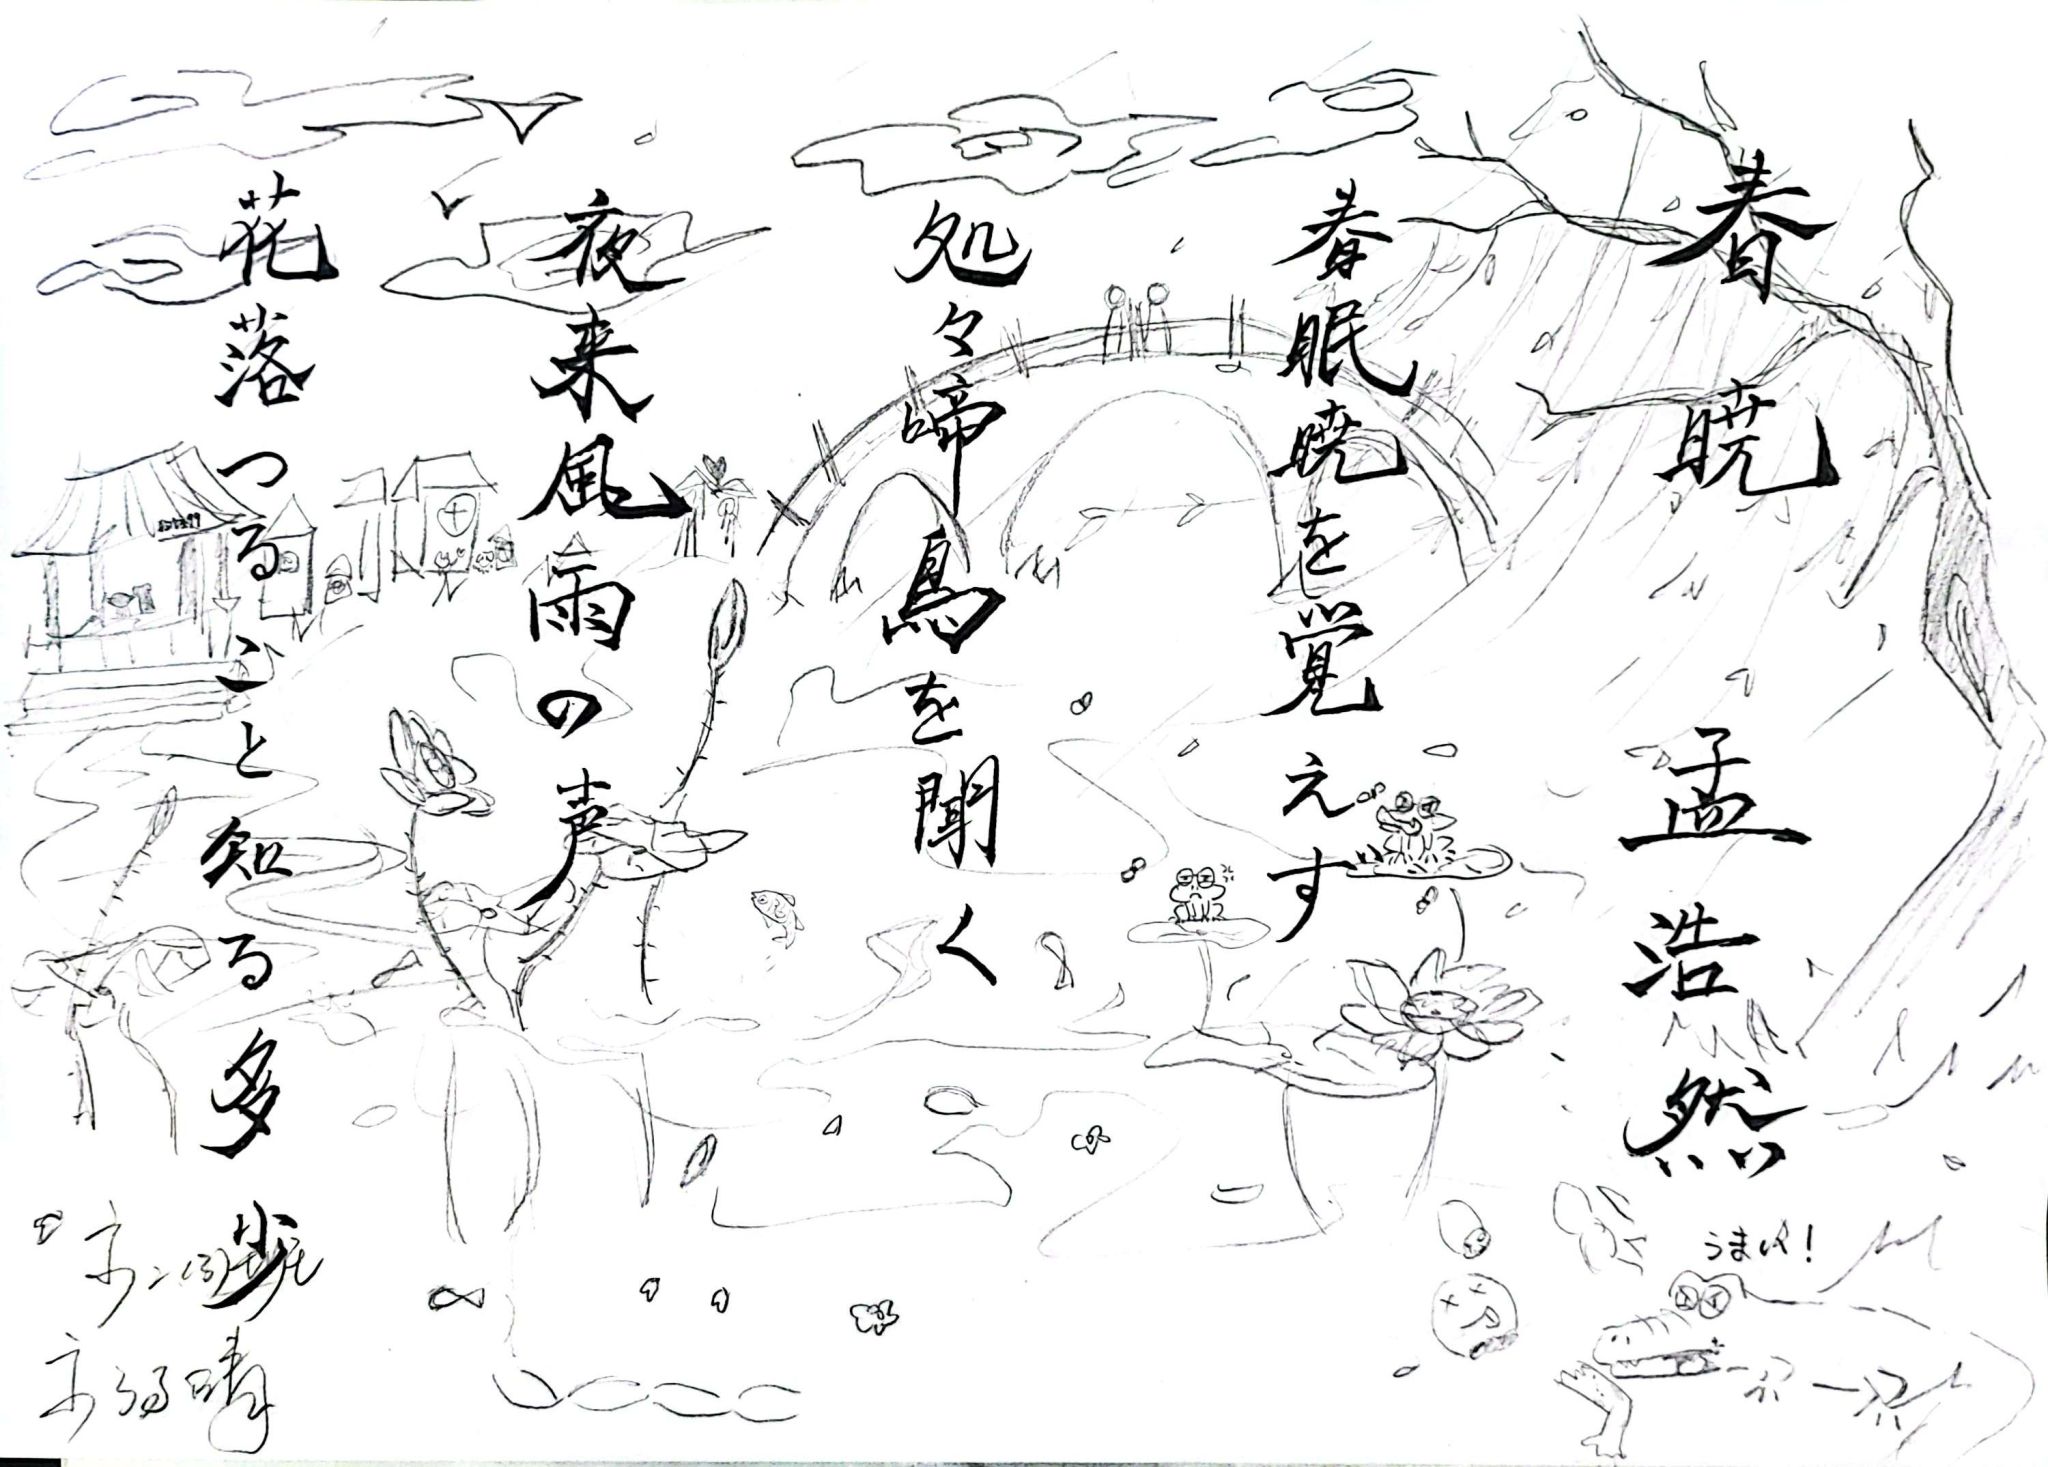 春暁 孟浩然
春眠暁を覚えす
処々啼鳥を聞く
夜来風雨の声
花落つること知る多少
うまい!